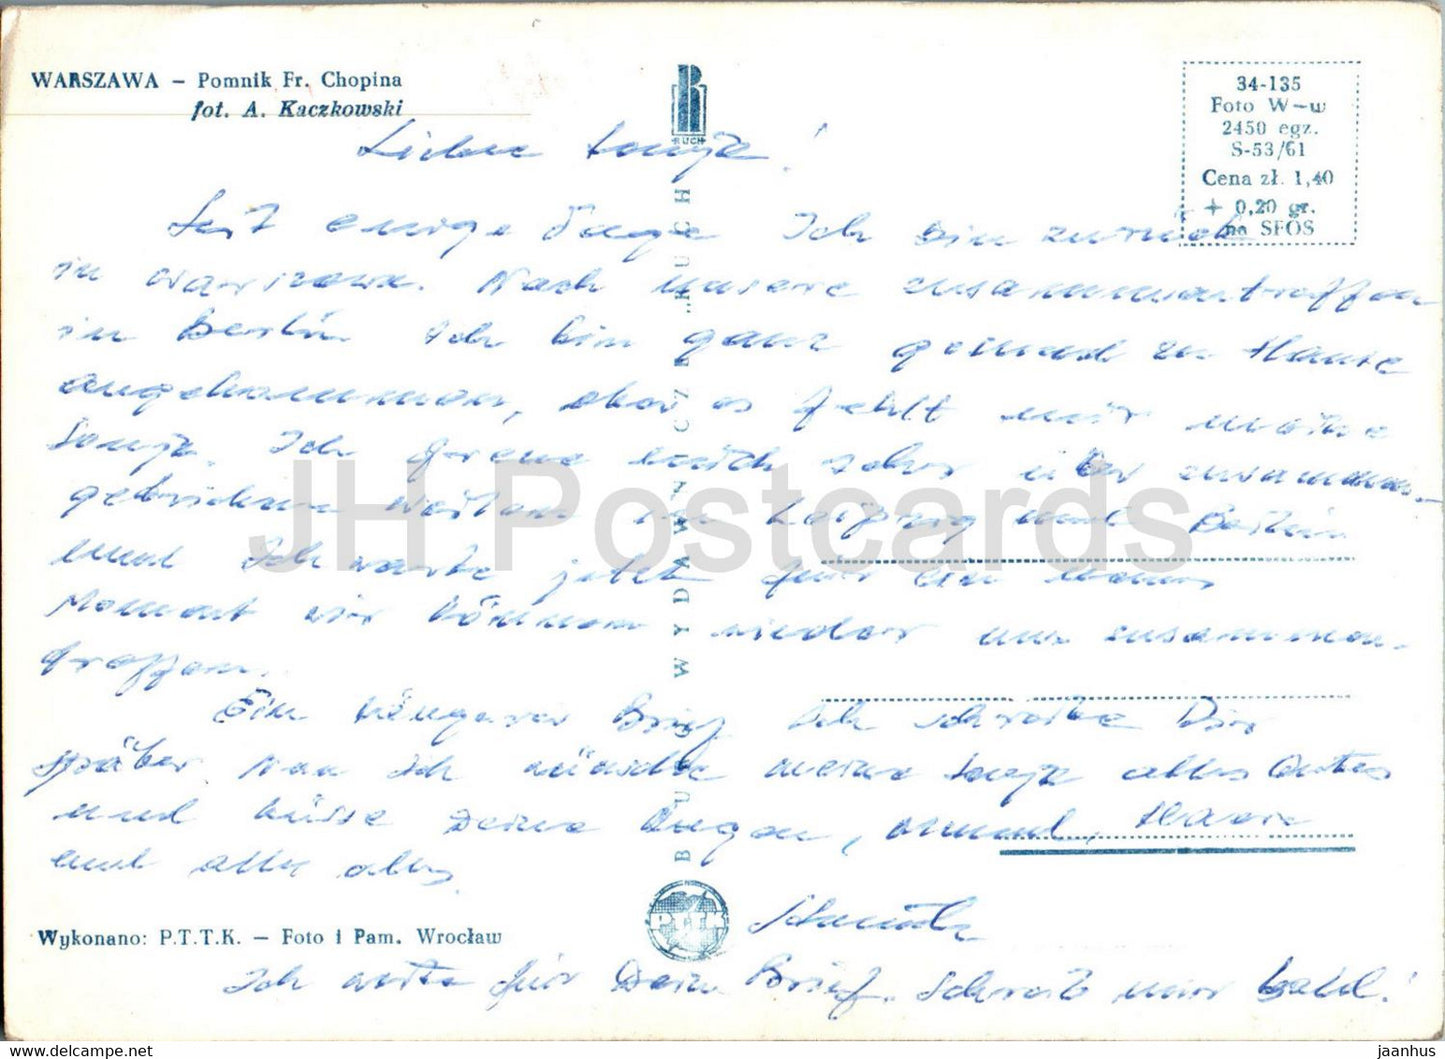 WARSZAWA – Pomnik Fr. Chopina
fot. A. Kaczkowski
RUCH
34-135
Foto W-w
2450 egz.
S-53/61
Cena zł. 1,40
+ 0,20 gr.
na SFOS
Liebe Sonja!
Seit einige Tage Ich bin zurück
in Warszawa. Nach unsere zusammentreffen
in Berlin Ich bin ganz gesund zu Hause
angekommen, aber es fehlt mir meine
Sonja. Ich freue mich sehr über zusammen-
gebrichene in Leipzig und Berlin
und Ich warte jetzt für ein
Moment wir können wieder uns zusammen-
treffen.
Ein längerer Brief Ich schreibe Dir
später Nun Ich wünsche meine Sonja alles Gutes
und küsse Deine Augen, Mund, Haare
und alles alles.
Ich warte für Dein Brief. Schreib mir bald!
BIURO WYDAWNICZE „RUCH"
PTTK
Wykonano: P.T.T.K. – Foto i Pam. Wrocław
JH Postcards
https://delcampe.net
jaanhus